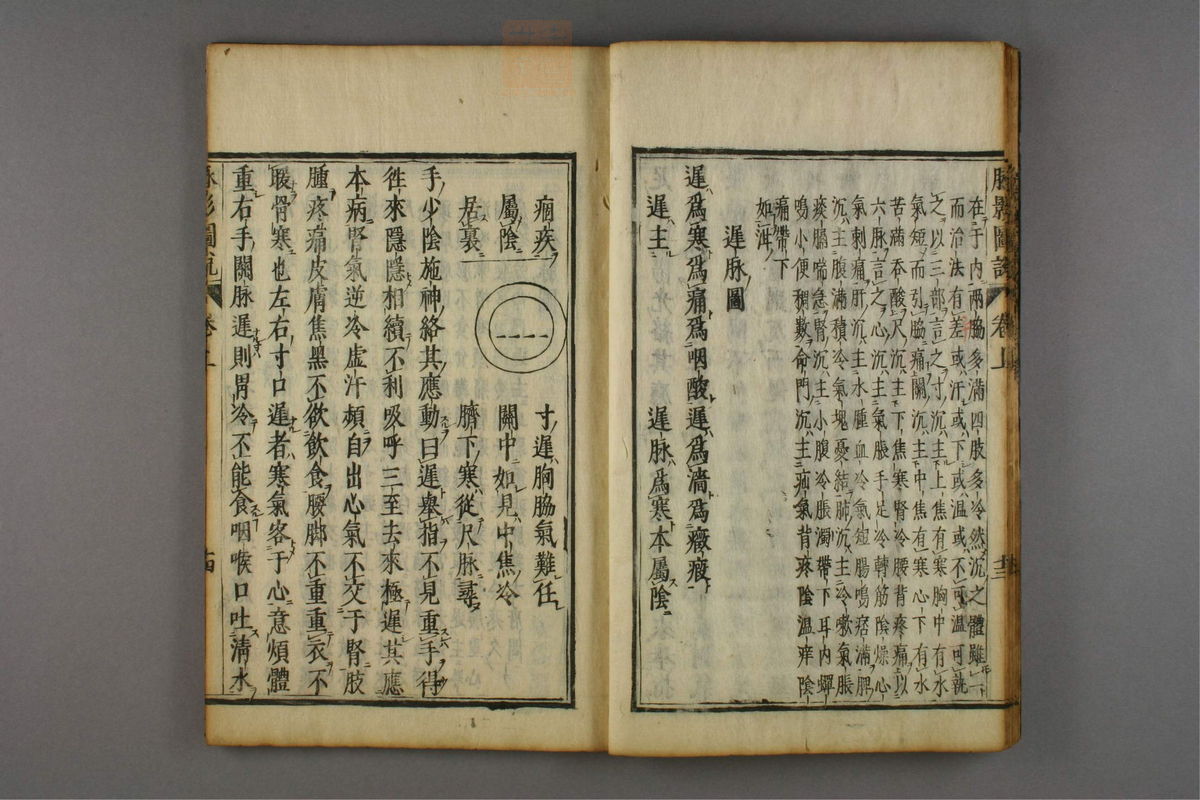 脉影圖說 卷上
在于內兩脇多滿四肢多冷然沉之體雖一
而治法有差或汗或下或温或不可温可就
之以三部言之寸沉主上焦有寒胸中有水
氣短而引脇痛關沉主中焦有寒心下有水
苦滿吞酸尺沉主下焦寒腎冷腰背疼痛以
六脉言之心沉主氣脹手足冷轉筋陰燥心
氣刺痛肝沉主水腫血冷氣短腸鳴痞滿脾
沉主腹滿積冷氣塊憂結肺沉主冷嗽氣脹
痰膈喘急腎沉主小腹冷脹濁帶下耳內蟬
鳴小便稠數命門沉主疝氣背疼陰温痒陰
痛帶下
如洱
遲脉圖
遲爲寒爲痛爲咽酸遲爲濇爲癥瘕
遲主 遲脉爲寒本屬陰
痼疾 寸遲胸脇氣難任
屬陰 關中如見中焦冷
居裏 臍下寒從尺脉尋
手少陰施神絡其應動曰遲舉指不見重手得
徃來隱隱相續不利吸呼三至去來極遲其應
本病腎氣逆冷虛汗頻自出心氣不交于腎肢
腫疼痛皮膚焦黑不欲飲食腰脚不重重衣不
暖骨寒也左右寸口遲者寒氣客于心意煩體
重右手關脉遲則胃冷不能食咽喉口吐清水